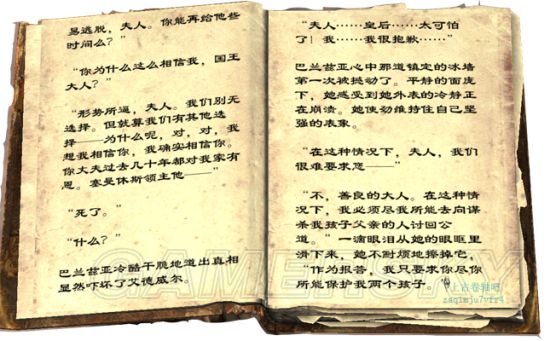 易逃脱，夫人。你能再给他些
时间么？”
“你为什么这么相信我，国王
大人？”
“形势所逼，夫人。我们别无
选择。但就算我们有其他选
择——为什么呢，对，对，我
想我相信你，我确实相信你。
你丈夫过去几十年都对我家有
恩。塞曼休斯领主他——”
“死了。”
“什么？”
巴兰兹亚冷酷干脆地道出真相
显然吓坏了艾德威尔。
“夫人……皇后……太可怕
了！我……我很抱歉……”
巴兰兹亚心中那道镇定的冰墙
第一次被撼动了。平静的面庞
下，她感受到她外表的冷静正
在崩溃。她使劲维持住自己坚
强的表象。
“在这种情况下，夫人，我们
很难要求您——”
“不，善良的大人。在这种情
况下，我必须尽我所能去向谋
杀我孩子父亲的人讨回公
道。”一滴眼泪从她的眼眶里
滑下来，她不耐烦地擦掉它，
“作为报答，我只要求你尽你
所能保护我两个孩子。”
上古卷轴吧
zaqimju7vfr4